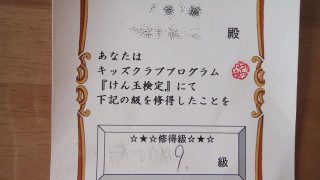 殿
あなたは
キッズクラブプログラム
『けん玉検定』にて
下記の級を修得したことを
☆★☆修得級☆★☆
9. 級